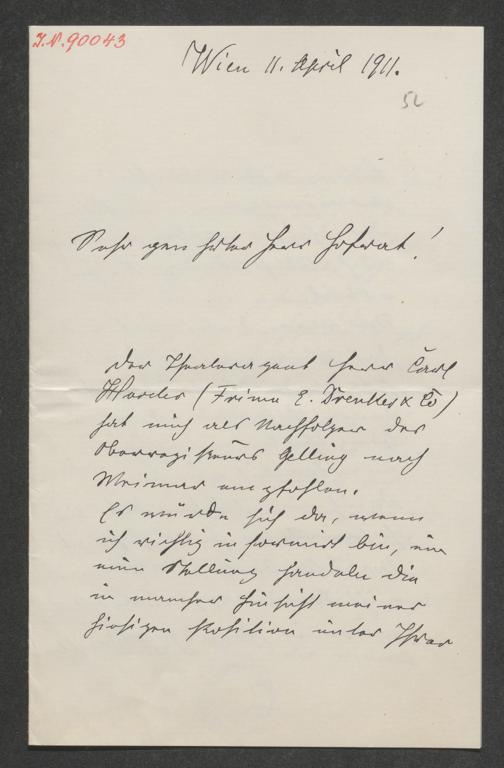 I.N. 90043
Wien 11. April 1911.
52
Sehr geehrter Herr Hofrat!
Der Theateragent Herr Carl
Harder (Firma E. Drenker & Co)
hat mich als Nachfolger des
Oberregisseurs Gelling nach
Weimar empfohlen.
Es würde sich da, wenn
ich richtig informirt bin, um
eine Stellung handeln die
in mancher Hinsicht meiner
hiesigen Position unter Ihrer